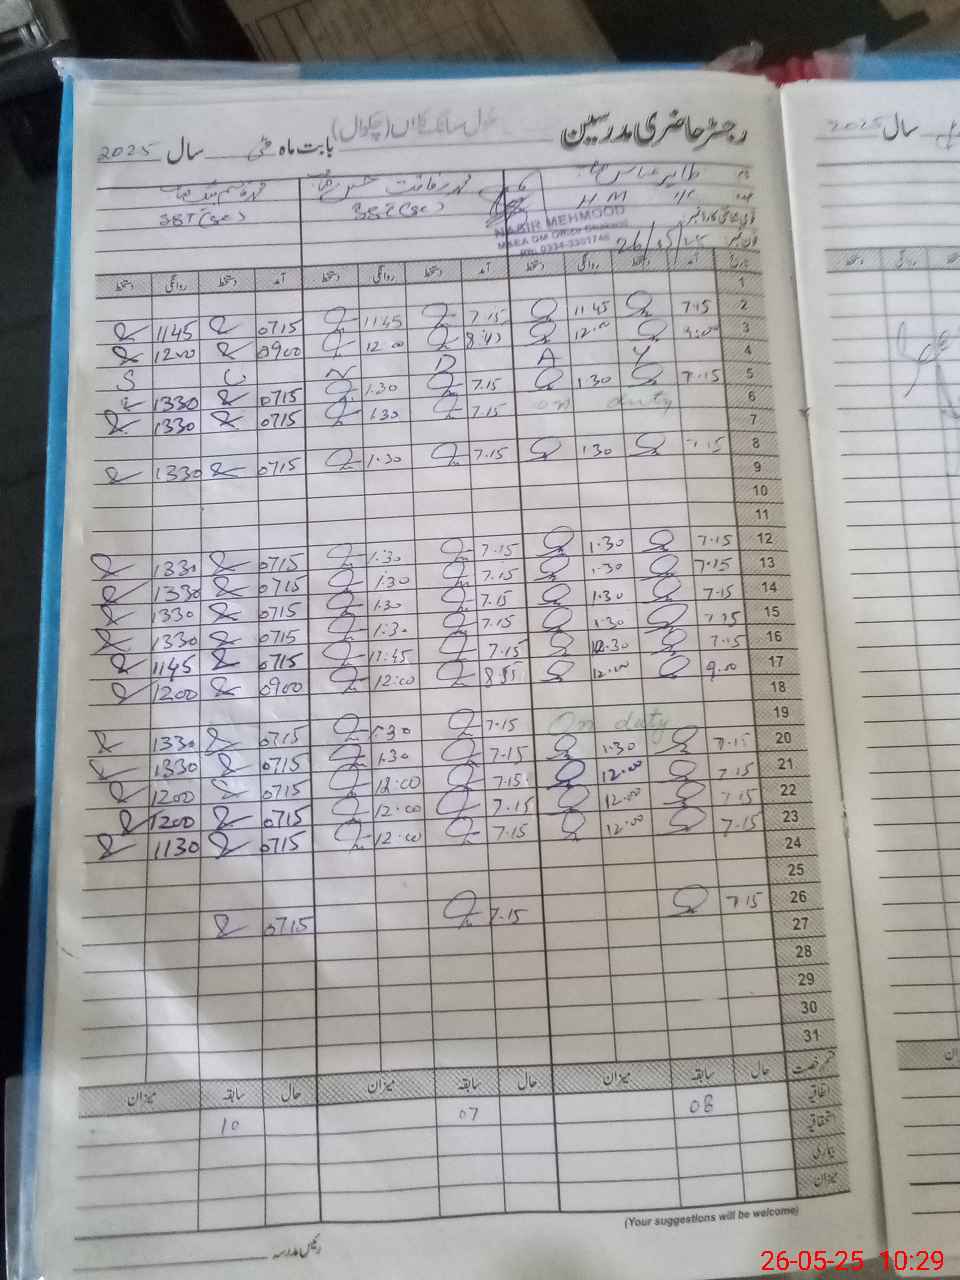 رجسٹر حاضری مدرسین سکول (چکوال) بابت ماہ مئی سال 2025
سال 2025
طاہر عباس محمد رفاقت محمد قاسم
H M I/C SST (Sc) SST (Sc)
NASIR MEHMOOD
26/05/25
تاریخ آمد دستخط روانگی دستخط آمد دستخط روانگی دستخط آمد دستخط روانگی دستخط
1
2 7.15 11 45 7.15 11 45 0715 1145
3 9:00 12.00 8:40 12 00 0900 1200
4 Y A D N U S
5 7.15 1.30 7.15 1.30 0715 1330
6 on duty 7.15 1.30 0715 1330
7
8 7.15 1.30 7.15 1.30 0715 1330
9
10
11
12 7.15 1.30 7.15 1.30 0715 1330
13 7.15 1.30 7.15 1.30 0715 1330
14 7.15 1.30 7.15 1.30 0715 1330
15 7.15 1.30 7.15 1:30 0715 1330
16 7.15 7.15 11:45 0715 1145
17 9.00 12.00 8:55 12:00 0900 1200
18
19 On duty 7.15 1.30 0715 1330
20 7.15 1.30 7.15 1.30 0715 1330
21 7.15 12.00 7.15 12:00 0715 1200
22 7.15 12.00 7.15 12:00 0715 1200
23 7.15 12.00 7.15 12:00 0715 1130
24
25
26 7.15 7.15 0715
27
28
29
30
31
قسم رخصت حال سابقہ میزان حال سابقہ میزان حال سابقہ میزان
اتفاقیہ 08 07 10
استحقاقیہ
بیماری
میزان
(Your suggestions will be welcome)
رئیس مدرسہ
26-05-25 10:29